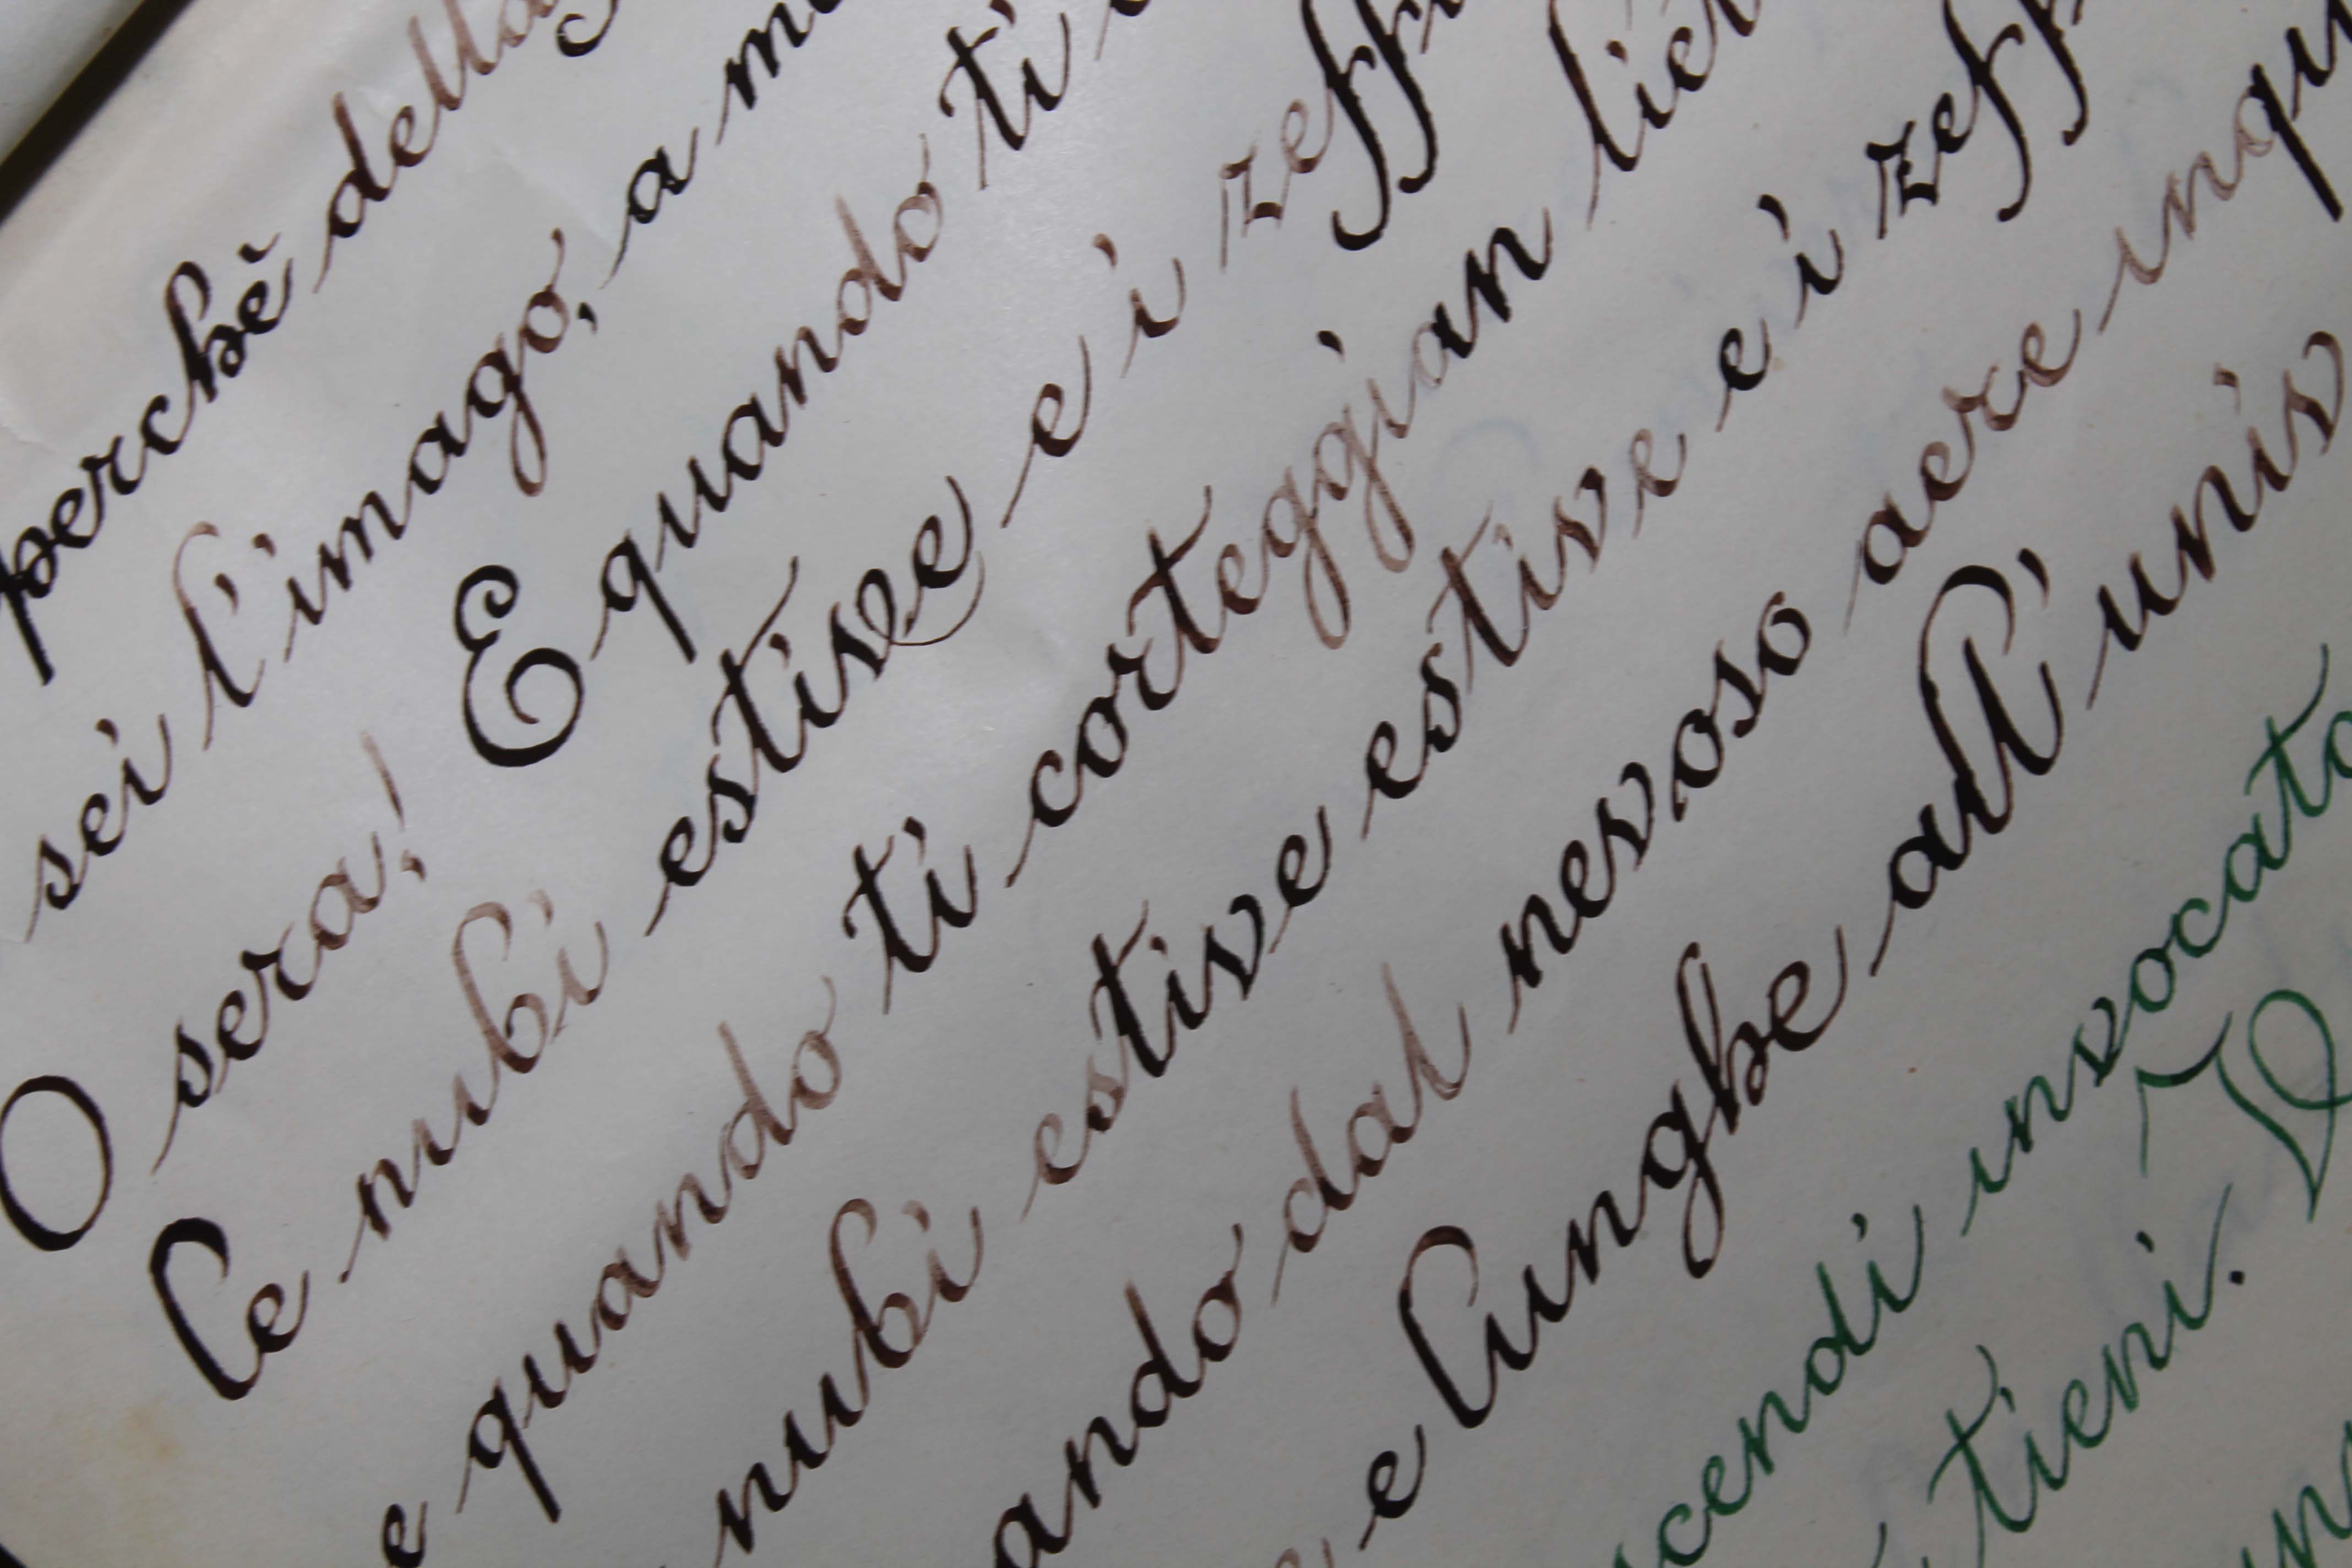 perchè della
sei l'imago, a me
O sera! E quando ti
le nubi estive e i zeff
e quando ti corteggian lie
nubi estive estive e i zeff
ando dal nevoso aere inqu
e lunghe all'unis
scendi invocata
tieni.